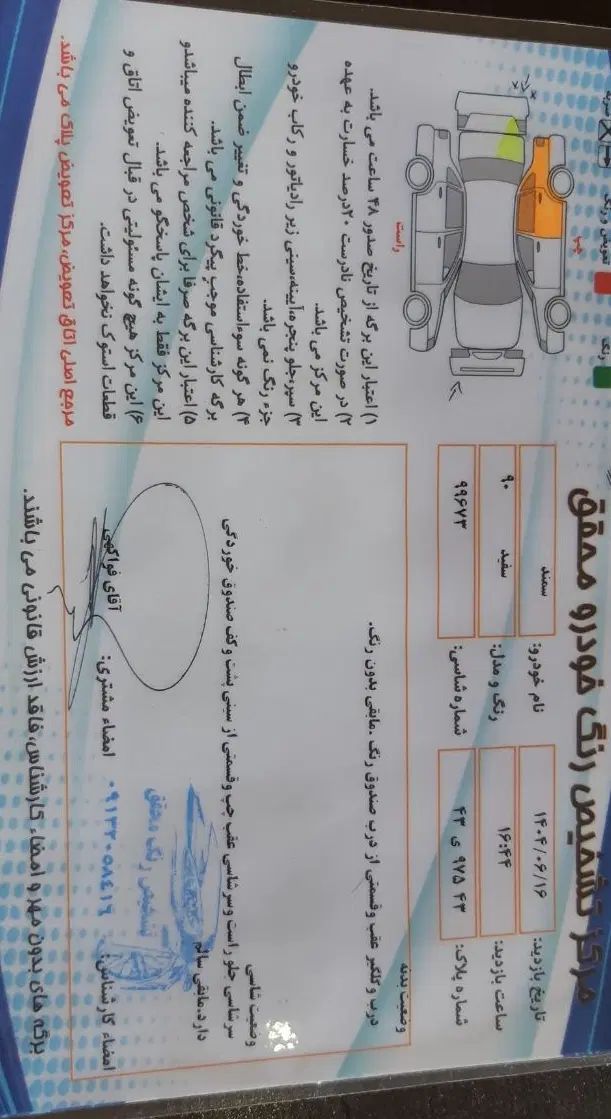 مرکز تشخیص رنگ خودرو محقق
تاریخ بازدید: ۱۴۰۴/۰۶/۱۶
نام خودرو: سمند
ساعت بازدید: ۱۶:۴۴
رنگ و مدل: سفید ۹۰
شماره پلاک: ۴۳ ۹۷۵ ی ۴۳
شماره شاسی: ۹۹۶۷۳
تعویض رنگ
رنگ
چپ
راست
وضعیت بدنه
درب و گلگیر عقب وقسمتی از درب صندوق رنگ .مابقی بدون رنگ.
وضعیت شاسی
سرشاسی جلو راست وسرشاسی عقب چپ وقسمتی از سینی پشت وکف صندوق خوردگی
دارد.مابقی سالم
امضاء کارشناس:
تشخیص رنگ محقق
۰۹۱۳۲۰۵۸۴۱۶
امضاء مشتری:
آقای فواکهی
۱) اعتبار این برگه از تاریخ صدور ۴۸ ساعت می باشد.
۲) در صورت تشخیص نادرست ۲۰درصد خسارت به عهده
این مرکز می باشد.
۳) سپر،جلو پنجره،آیینه،سینی زیر رادیاتور و رکاب خودرو
جزء رنگ نمی باشد.
۴) هر گونه سوءاستفاده،خط خوردگی و تغییر ضمن ابطال
برگه کارشناسی موجب پیگرد قانونی می باشد.
۵) اعتبار این برگه صرفا برای شخص مراجعه کننده میباشدو
این مرکز فقط به ایشان پاسخگو می باشد.
۶) این مرکز هیچ گونه مسئولیتی در قبال تعویض اتاق و
قطعات استوک نخواهد داشت.
مرجع اصلی اتاق تعویض،مرکز تعویض پلاک می باشد.
برگه های بدون مهر و امضاء کارشناس،فاقد ارزش قانونی می باشند.